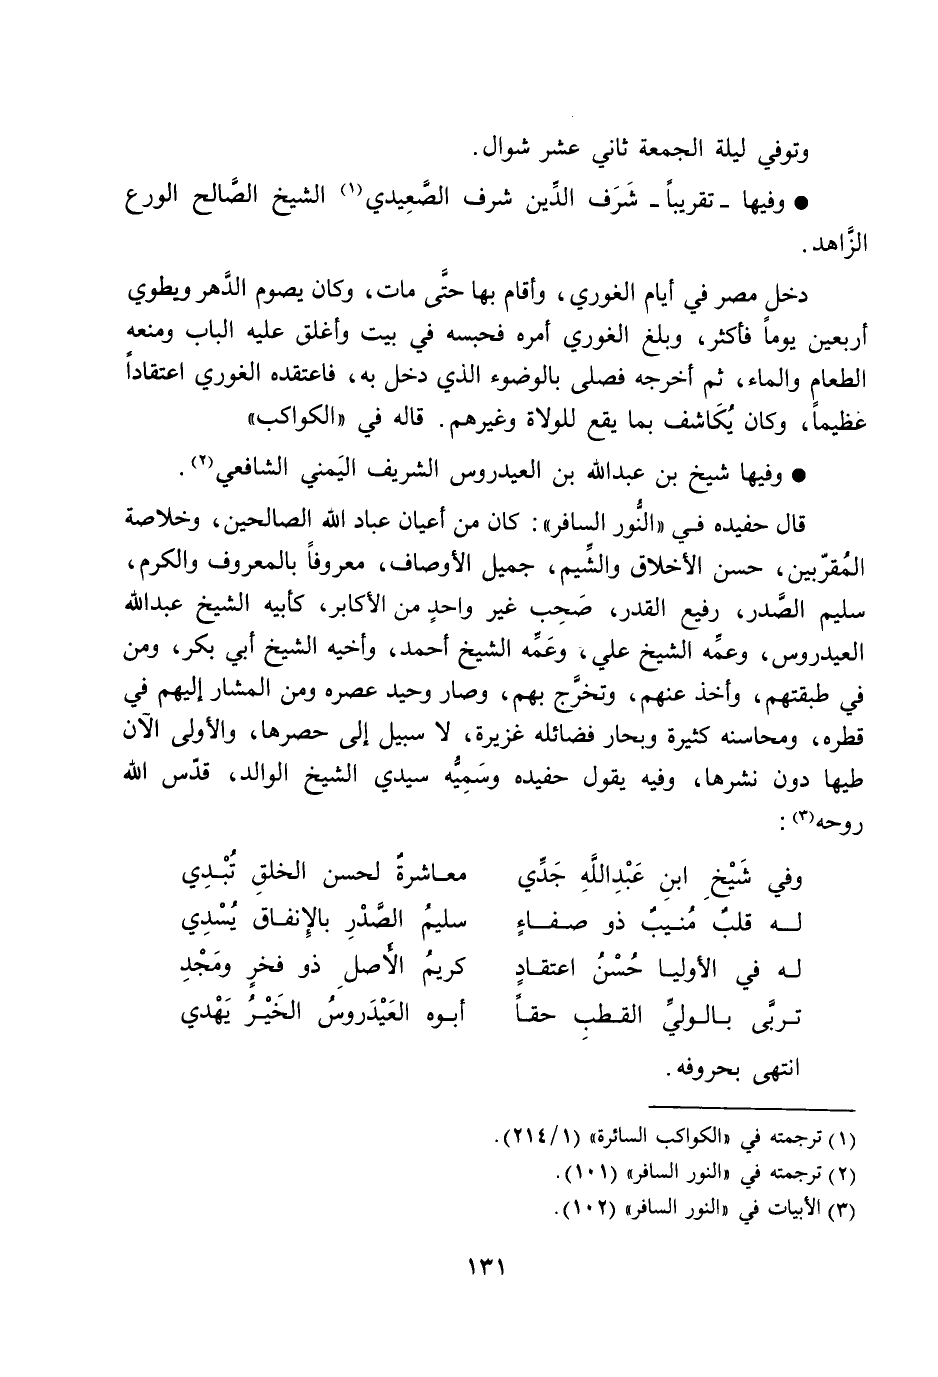 وتوفي ليلة الجمعة ثاني عشر شوال.
● وفيها ـ تقريباً ـ شَرَف الدِّين شرف الصَّعِيدي(١) الشيخ الصَّالح الورع
الزَّاهد.
دخل مصر في أيام الغوري، وأقام بها حتَّى مات، وكان يصوم الدَّهر ويطوي
أربعين يوماً فأكثر، وبلغ الغوري أمره فحبسه في بيت وأغلق عليه الباب ومنعه
الطعام والماء، ثم أخرجه فصلى بالوضوء الذي دخل به، فاعتقده الغوري اعتقاداً
عظيماً، وكان يُكَاشف بما يقع للولاة وغيرهم. قاله في «الكواكب»
● وفيها شيخ بن عبدالله بن العيدروس الشريف اليَمني الشافعي(٢).
قال حفيده في «النُّور السافر»: كان من أعيان عباد الله الصالحين، وخلاصة
المُقرّبين، حسن الأخلاق والشِّيم، جميل الأوصاف، معروفاً بالمعروف والكرم،
سليم الصَّدر، رفيع القدر، صَحِب غير واحدٍ من الأكابر، كأبيه الشيخ عبدالله
العيدروس، وعمِّه الشيخ علي، وعَمِّه الشيخ أحمد، وأخيه الشيخ أبي بكر، ومن
في طبقتهم، وأخذ عنهم، وتخرَّج بهم، وصار وحيد عصره ومن المشار إليهم في
قطره، ومحاسنه كثيرة وبحار فضائله غزيرة، لا سبيل إلى حصرها، والأولى الآن
طيها دون نشرها، وفيه يقول حفيده وسَمِيُّه سيدي الشيخ الوالد، قدّس الله
روحه(٣):
وفي شَيْخِ ابنِ عَبْدِاللَّهِ جَدِّي معاشرةٌ لحسن الخلقِ تُبْدِي
له قلبٌ مُنيبٌ ذو صفاءٍ سليمُ الصَّدْرِ بالإنفاق يُسْدِي
له في الأوليا حُسْنُ اعتقادٍ كريمُ الأَصلِ ذو فخرٍ ومَجْدِ
تربَّى بالوليِّ القطبِ حقاً أبوه العَيْدَروسُ الخَيْرُ يَهْدي
انتهى بحروفه.
(١) ترجمته في «الكواكب السائرة» (٢١٤/١).
(٢) ترجمته في «النور السافر» (١٠١).
(٣) الأبيات في «النور السافر» (١٠٢).
١٣١